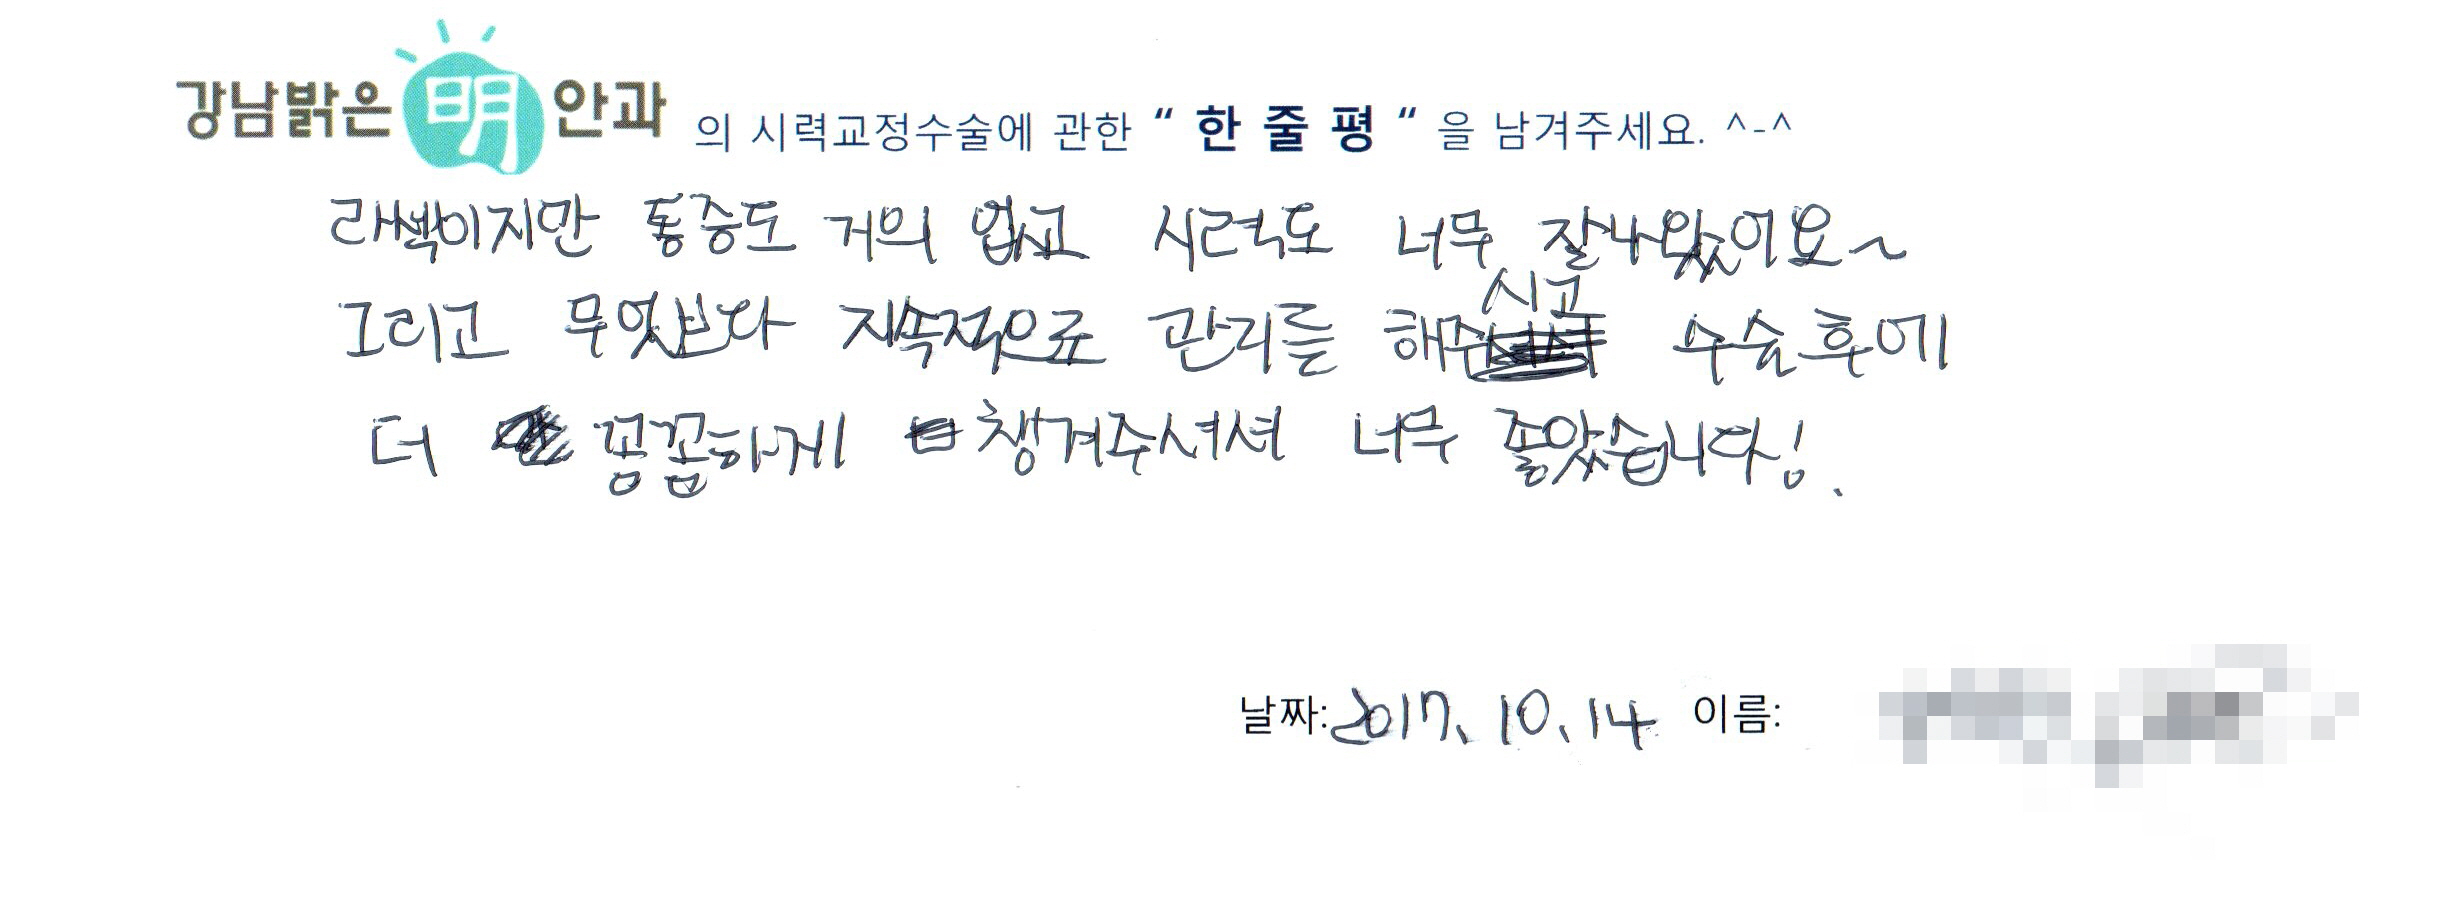 강남밝은 明 안과 의 시력교정수술에 관한 “ 한 줄 평 “ 을 남겨주세요. ^-^
라섹이지만 통증도 거의 없고 시력도 너무 잘나왔어요~
그리고 무엇보다 지속적으로 관리를 해주시고 수술후에
더 꼼꼼하게 챙겨주셔셔 너무 좋았습니다!.
날짜: 2017. 10. 14 이름: